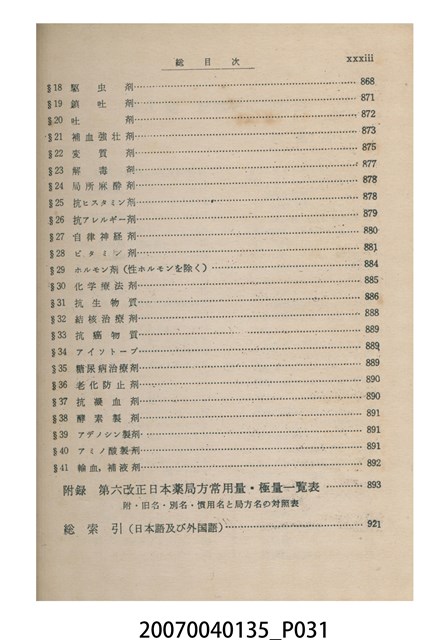 総目次 xxxiii
§18 駆虫剤 868
§19 鎮吐剤 871
§20 吐剤 872
§21 補血強壮剤 873
§22 変質剤 875
§23 解毒剤 877
§24 局所麻酔剤 878
§25 抗ヒスタミン剤 878
§26 抗アレルギー剤 879
§27 自律神経剤 880
§28 ビタミン剤 881
§29 ホルモン剤（性ホルモンを除く） 884
§30 化学療法剤 885
§31 抗生物質 886
§32 結核治療剤 888
§33 抗癌物質 889
§34 アイソトープ 889
§35 糖尿病治療剤 889
§36 老化防止剤 890
§37 抗凝血剤 890
§38 酵素製剤 891
§39 アデノシン製剤 891
§40 アミノ酸製剤 891
§41 輸血，補液剤 892
附録 第六改正日本薬局方常用量・極量一覧表 893
附・旧名・別名・慣用名と局方名の対照表
総索引（日本語及び外国語） 921
20070040135_P031